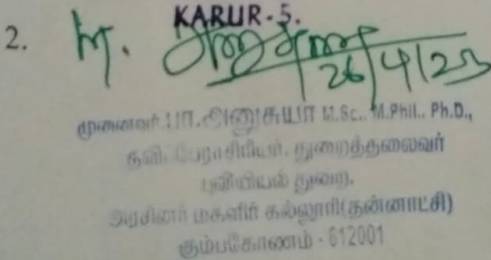 KARUR-5.
2.
26/4/23
முனைவர் பா. அனுசுயா M.Sc., M.Phil., Ph.D.,
துறைத்தலைவர்
புவியியல் துறை,
அரசினர் மகளிர் கல்லூரி(தன்னாட்சி)
கும்பகோணம் - 612001